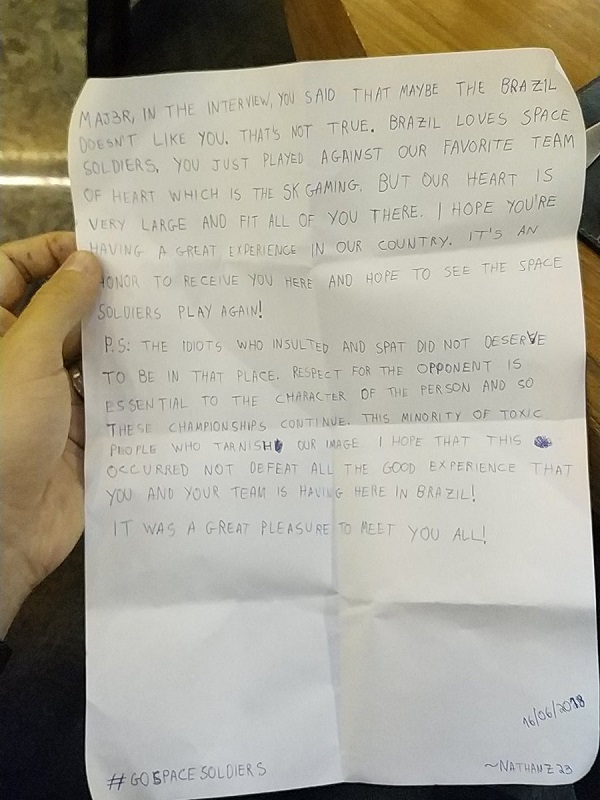 MAJ3R, IN THE INTERVIEW, YOU SAID THAT MAYBE THE BRAZIL
DOESN'T LIKE YOU. THAT'S NOT TRUE. BRAZIL LOVES SPACE
SOLDIERS, YOU JUST PLAYED AGAINST OUR FAVORITE TEAM
OF HEART WHICH IS THE SK GAMING. BUT OUR HEART IS
VERY LARGE AND FIT ALL OF YOU THERE. I HOPE YOU'RE
HAVING A GREAT EXPERIENCE IN OUR COUNTRY. IT'S AN
HONOR TO RECEIVE YOU HERE AND HOPE TO SEE THE SPACE
SOLDIERS PLAY AGAIN!
P.S: THE IDIOTS WHO INSULTED AND SPAT DID NOT DESERVE
TO BE IN THAT PLACE. RESPECT FOR THE OPPONENT IS
ESSENTIAL TO THE CHARACTER OF THE PERSON AND SO
THESE CHAMPIONSHIPS CONTINUE. THIS MINORITY OF TOXIC
PEOPLE WHO TARNISH OUR IMAGE. I HOPE THAT THIS
OCCURRED NOT DEFEAT ALL THE GOOD EXPERIENCE THAT
YOU AND YOUR TEAM IS HAVING HERE IN BRAZIL!
IT WAS A GREAT PLEASURE TO MEET YOU ALL!
16/06/2018
#GOSPACESOLDIERS
~NATHANZ23